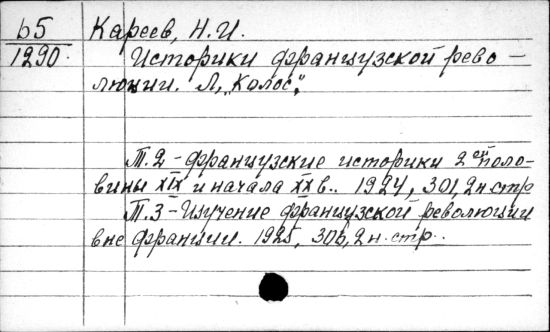 б5
1290.
Кареев, Н.И.
Историки французской рево-
люции. Л, „Колос",
Т.2 - французские историки 2 ой поло-
вины XIX и начала XX в.. 1924, 301,2 н.стр
Т.3 - Изучение французской революции
вне Франции. 1925, 306,2 н. стр.